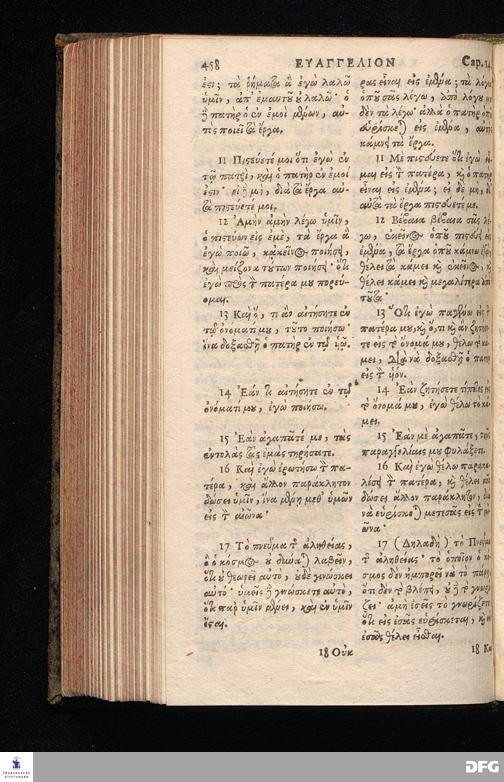 458 ΕΥΑΓΓΕΛΙΟΝ Cap. 14
ἐςι; τὰ ῥήματα ἃ ἐγὼ λαλῶ
ὑμῖν, ἀπ' ἐμαυτοῦ οὐ λαλῶ· ὁ
ἢ πατὴρ ὁ ἐν ἐμοὶ μένων, αὐ-
τὸς ποιεῖ τὰ ἔργα.
11 Πιςεύετέ μοι ὅτι ἐγὼ ἐν
τῷ πατρὶ, καὶ ὁ πατὴρ ἐν ἐμοί
ἐςιν· εἰ ἢ μὴ, διὰ τὰ ἔργα αὐ-
τὰ πιςεύετέ μοι.
12 Ἀμὴν ἀμὴν λέγω ὑμῖν,
ὁ πιςεύων εἰς ἐμὲ, τὰ ἔργα ἃ
ἐγὼ ποιῶ, κἀκεῖνος ποιήσει,
καὶ μείζονα τούτων ποιήσει· ὅτι
ἐγὼ πρὸς τ πατέρα μου πορεύ-
ομαι.
13 Καὶ ὅ, τι ἂν αἰτήσητε ἐν
τῷ ὀνόματί μου, τοῦτο ποιήσω·
ἵνα δοξασθῇ ὁ πατὴρ ἐν τῷ ἱῷ.
14 Ἐάν τι αἰτήσητε ἐν τῷ
ὀνόματί μου, ἐγὼ ποιήσω.
15 Ἐὰν ἀγαπᾶτέ με, τὰς
ἐντολὰς τὰς ἐμὰς τηρήσατε.
16 Καὶ ἐγὼ ἐρωτήσω τ πα-
τέρα, καὶ ἄλλον παράκλητον
δώσει ὑμῖν, ἵνα μένῃ μεθ' ὑμῶν
εἰς τ αἰῶνα·
17 Τὸ πνεῦμα τ ἀληθείας,
ὃ ὁ κόσμος οὐ δύναται λαβεῖν,
ὅτι οὐ θεωρεῖ αὐτὸ, οὐδὲ γινώσκει
αὐτό· ὑμεῖς ἢ γινώσκετε αὐτὸ,
ὅτι παρ' ὑμῖν μένει, καὶ ἐν ὑμῖν
ἔςαι.
18 Οὐκ
ρας εἶναι εἰς ἐμένα; τὰ λόγια
ὁποῦ σᾶς λέγω, ἀπὸ λόγου
δὲν τὰ λέγω· ἀλλὰ ὁ πατὴρ ὁποῦ
εὑρίσκεται εἰς ἐμένα, αὐτὸς
κάμνει τὰ ἔργα.
11 Μὲ πιςεύετε ὅτι ἐγὼ
μαι εἰς τ πατέρα, καὶ ὁ πατὴρ
εἶναι εἰς ἐμένα; εἰ δὲ μὴ,
αὐτὰ τὰ ἔργα πιςεύετέ με.
12 Βέβαια βέβαια σᾶς λέ-
γω, ἐκεῖνος ὁποῦ πιςεύει
ἐμένα, τὰ ἔργα ὁποῦ κάμνω ἐγὼ
θέλει τὰ κάμει καὶ ἐκεῖνος, καὶ
θέλει κάμει καὶ μεγαλίτερα ἀπὸ
τοῦτα·
13 Ὅτι ἐγὼ παγαίνω εἰς τ
πατέρα μου, καὶ ὅ, τι καὶ ἂν ζητήσε-
τε εἰς τ ὄνομά μου, θέλω τὸ κά-
μει, διὰ νὰ δοξασθῇ ὁ πατὴρ
εἰς τ ἱόν.
14 Ἐὰν ζητήσετε τίποτες εἰς
τ ὄνομά μου, ἐγὼ θέλω τὸ κά-
μει.
15 Ἐὰν μὲ ἀγαπᾶτε, τὰς
παραγγελίας μου φυλάξετε.
16 Καὶ ἐγὼ θέλω παρακα-
λέσει τ πατέρα, καὶ θέλει σᾶς
δώσει ἄλλον παράκλητον, διὰ
νὰ εὑρίσκεται μετ' ἐσᾶς εἰς τ αἰ-
ῶνα·
17 (Δηλαδὴ) τὸ Πνεῦμα
τ ἀληθείας· τὸ ὁποῖον ὁ κό-
σμος δὲν ἠμπορεῖ νὰ τὸ πάρῃ,
ὅτι δὲν τ βλέπει, οὐ ἢ τ γνωρί-
ζει· ἀμὴ ἐσεῖς τὸ γνωρίζετε
ὅτι εἰς ἐσᾶς εὑρίσκεται, καὶ εἰς
ἐσᾶς θέλει εἶσθαι.
18 Και
DFG